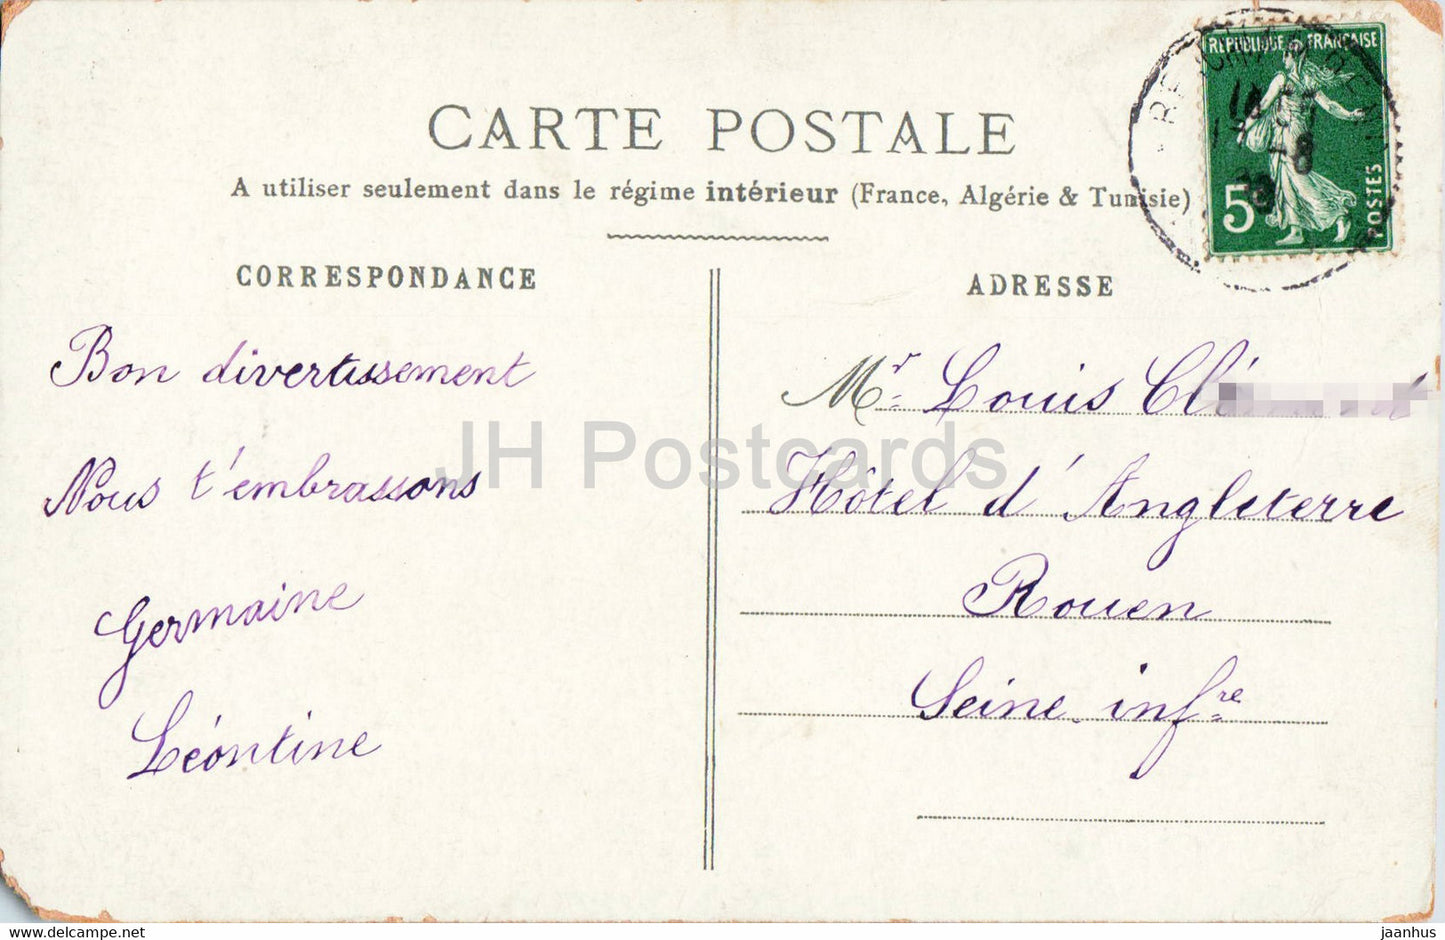 CARTE POSTALE
A utiliser seulement dans le régime intérieur (France, Algérie & Tunisie)
REPUBLIQUE FRANÇAISE
5
POSTES
CORRESPONDANCE
Bon divertissement
Nous t'embrassons
Germaine
Léontine
ADRESSE
Mr Louis
Hôtel d'Angleterre
Rouen
Seine infre
JH Postcards
jaanhus © delcampe.net